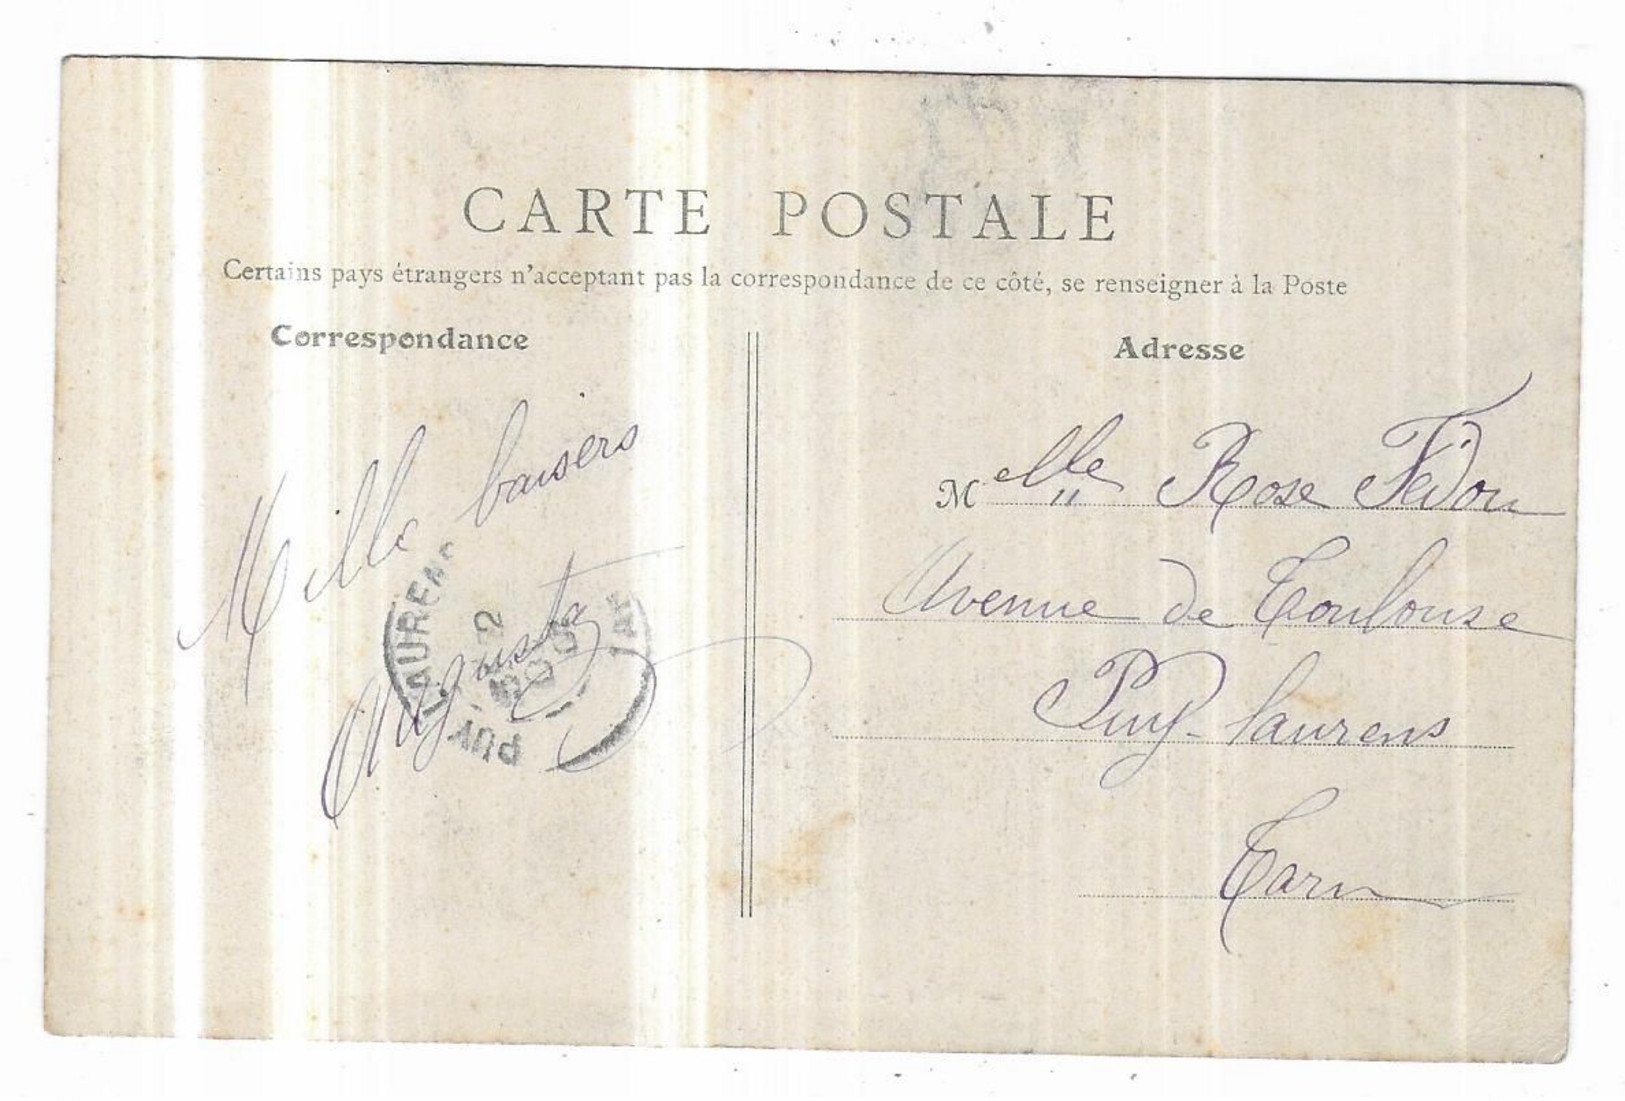 CARTE POSTALE
Certains pays étrangers n'acceptant pas la correspondance de ce côté, se renseigner à la Poste
Correspondance
Mille baisers
Augusta
PUY LAURENS
Adresse
Melle Rose Fédou
Avenue de Toulouse
Puy-laurens
Tarn